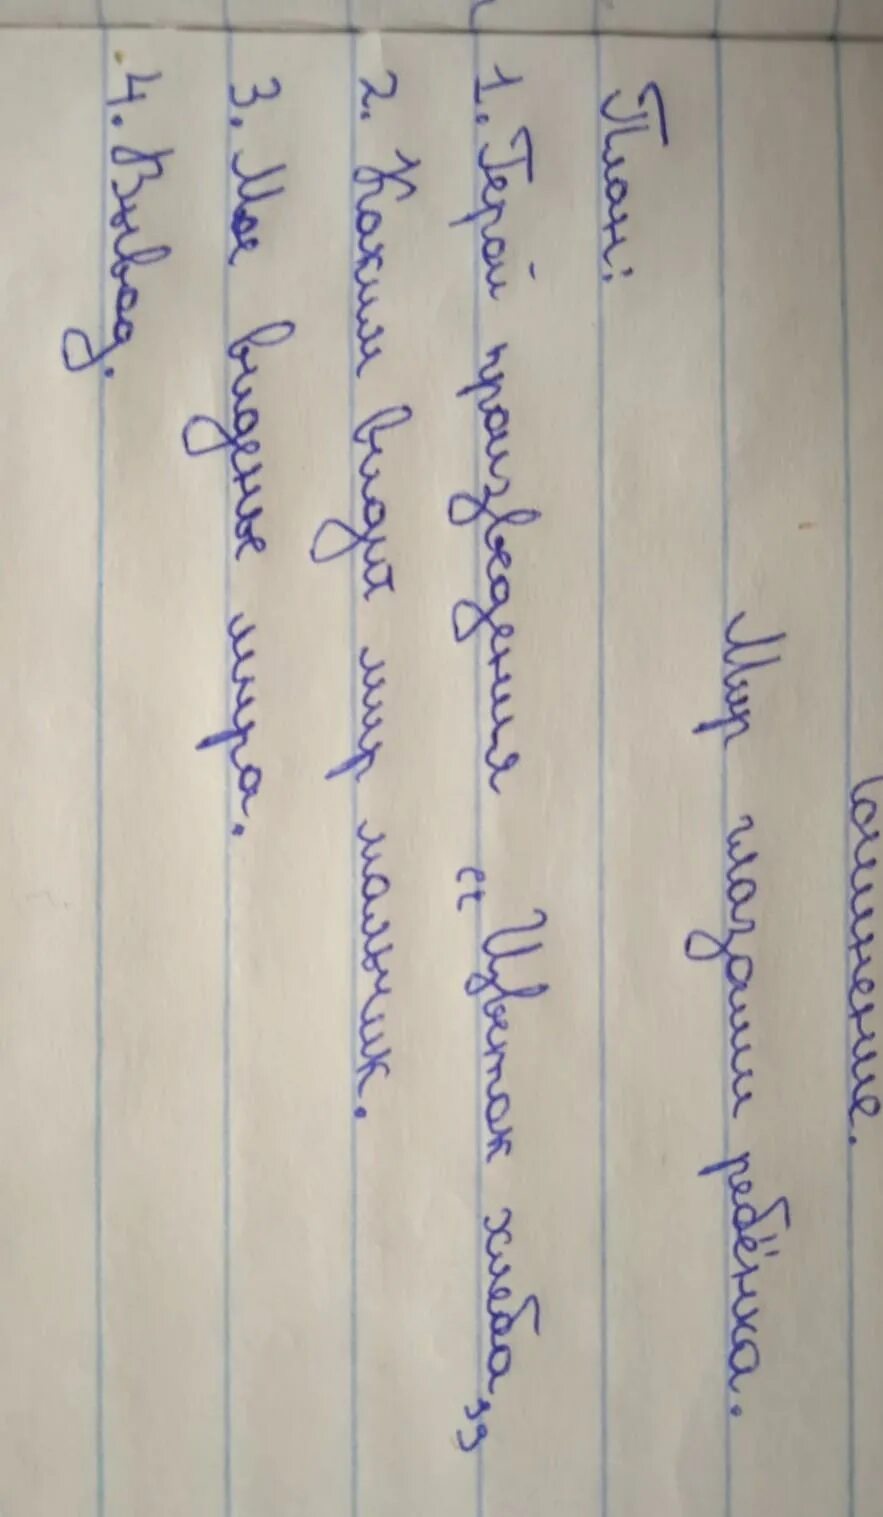 Сочинение.
Мир глазами ребёнка.
План:
1. Герой произведения "Цветок хлеба"
2. Каким видит мир мальчик.
3. Мое виденье мира.
4. Вывод.